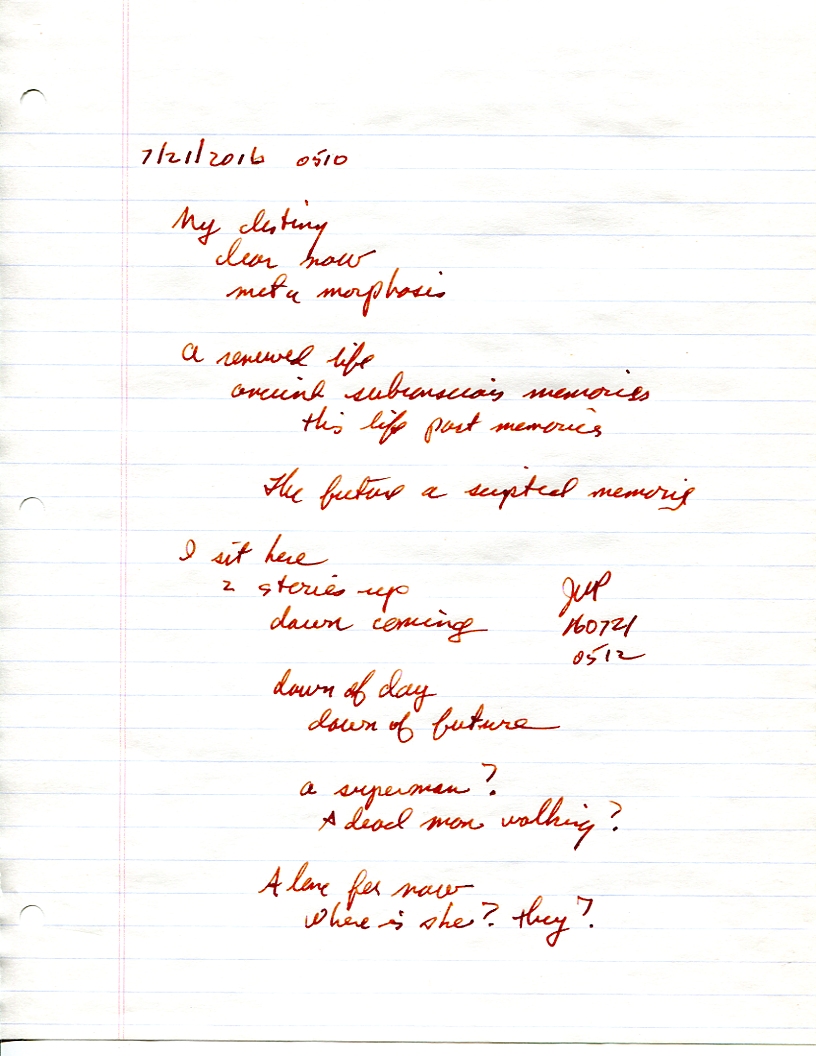 7/21/2016 0510
My destiny
clear now
meta morphosis
A renewed life
ancient subconscious memories
this life past memories
The future a memorie
I sit here
2 stories up
dawn coming
JMP
160721
0512
dawn of day
dawn of future
a superman?
A dead man walking?
Alone for now
Where is she? they?